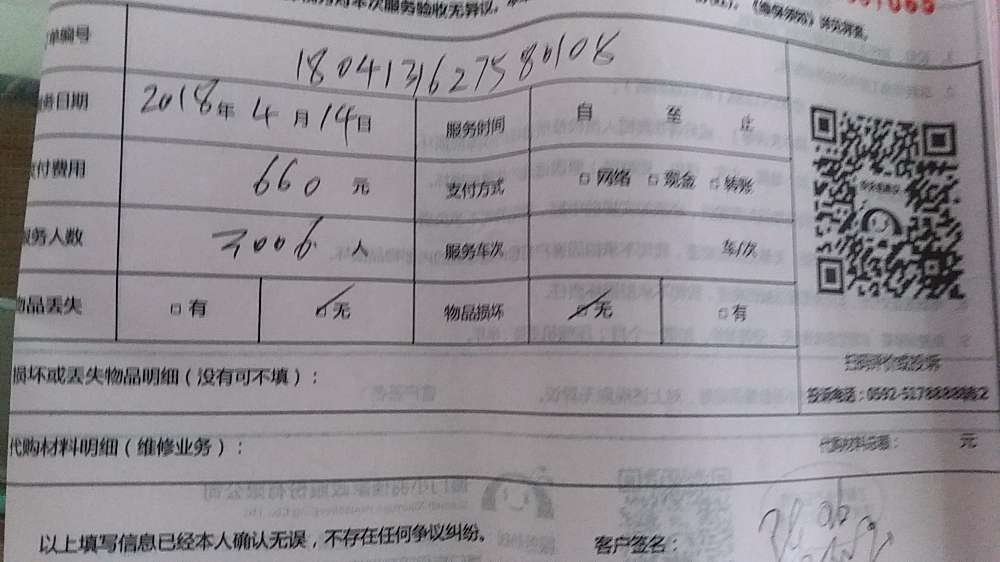 对本次服务验收无异议
单编号 1804131627580108
务日期 2018年4月14日 服务时间 自 至 止
付费用 660元 支付方式 □网络 □现金 □转账
服务人数 3006人 服务车次 车/次
物品丢失 □有 □无 物品损坏 □无 □有
扫码评价或投诉
损坏或丢失物品明细（没有可不填）：
投诉电话：0592-5178888
代购材料明细（维修业务）： 代购材料元 元
以上填写信息已经本人确认无误，不存在任何争议纠纷。 客户签名：